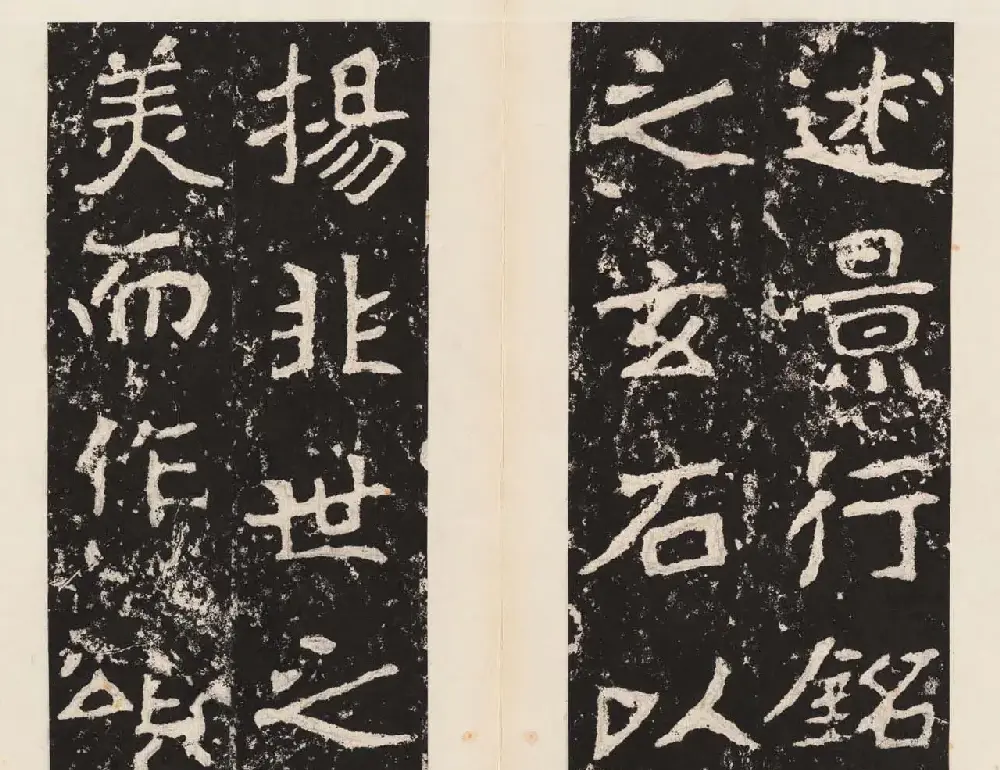 述景行銘
之玄石以
揚非世之
美而作頌